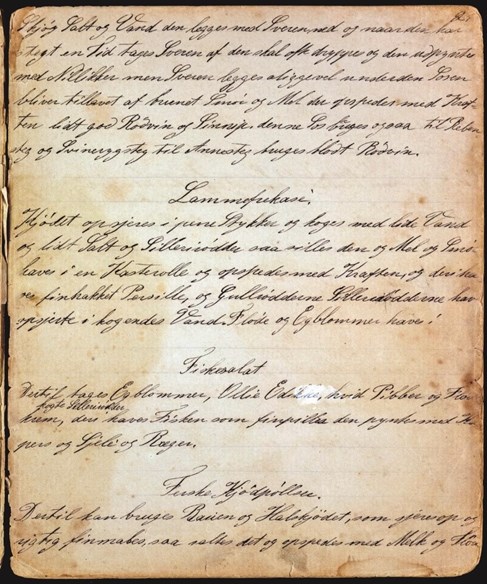 Kjøg Salt og Vand den legges med Sveren ned og naar den har
kogt en Tid tages Sveren af den skal ofte dryppes og den udpyntes
med Nilliker men Sveren legges alligevel under den Sosen
bliver tillavet af brunet Smør og Mel der opspedes med Kraf
ten lidt god Rødvin og Sinnep denne Sos bruges ogsaa til Reben
steg og Svinerygsteg til Annesteg bruges blöst Rødvin.
Lammefrikasi.
Kjødet opskjæres i pene Stykker og koges med lidt Vand
og lidt Salt og Sillerirødder saa silles den og Mel og Smør
haves i en Kasterolle og opspedes med Kraften, og deri ha
ves finhakket Persille, og Gullrødderne Sillerirødderne hav
opskjærte i kogendes Vand. Fløde og Egblommer haves i
Fiskesalat
Dertil tages Egblommer, Ollie Edike, hvid Pibber og Flø
kogte Sillerirødder
krem, deri haves Fisken som finpilles den pyntes med Ka
pers og Sjele og Ræger.
Ferske Kjødpøllser.
Dertil kan bruges Baugen og Halskjødet, som skjæres op og
rigtig finmales, saa saltes det og opspedes med Melk og Kra